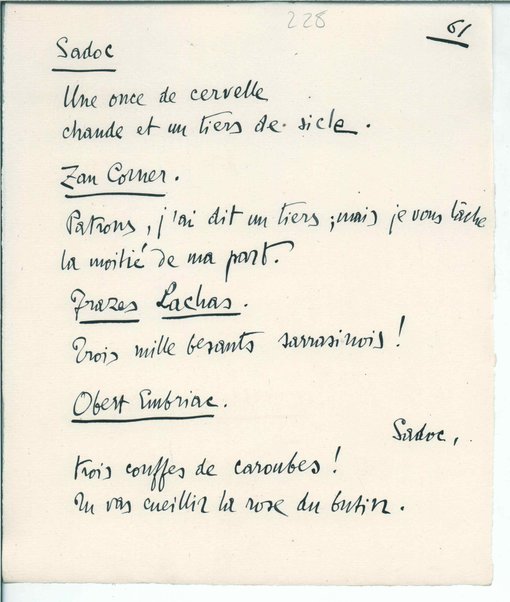 228
61
Sadoc
Une once de cervelle
chaude et un tiers de sicle.
Zan Corner.
Patrons, j'ai dit un tiers ; mais je vous lâche
la moitié de ma part.
Frazes Lachas.
Trois mille besants sarrasinois !
Obert Embriac.
Sadoc,
trois couffes de caroubes !
Tu vas cueillir la rose du butin.